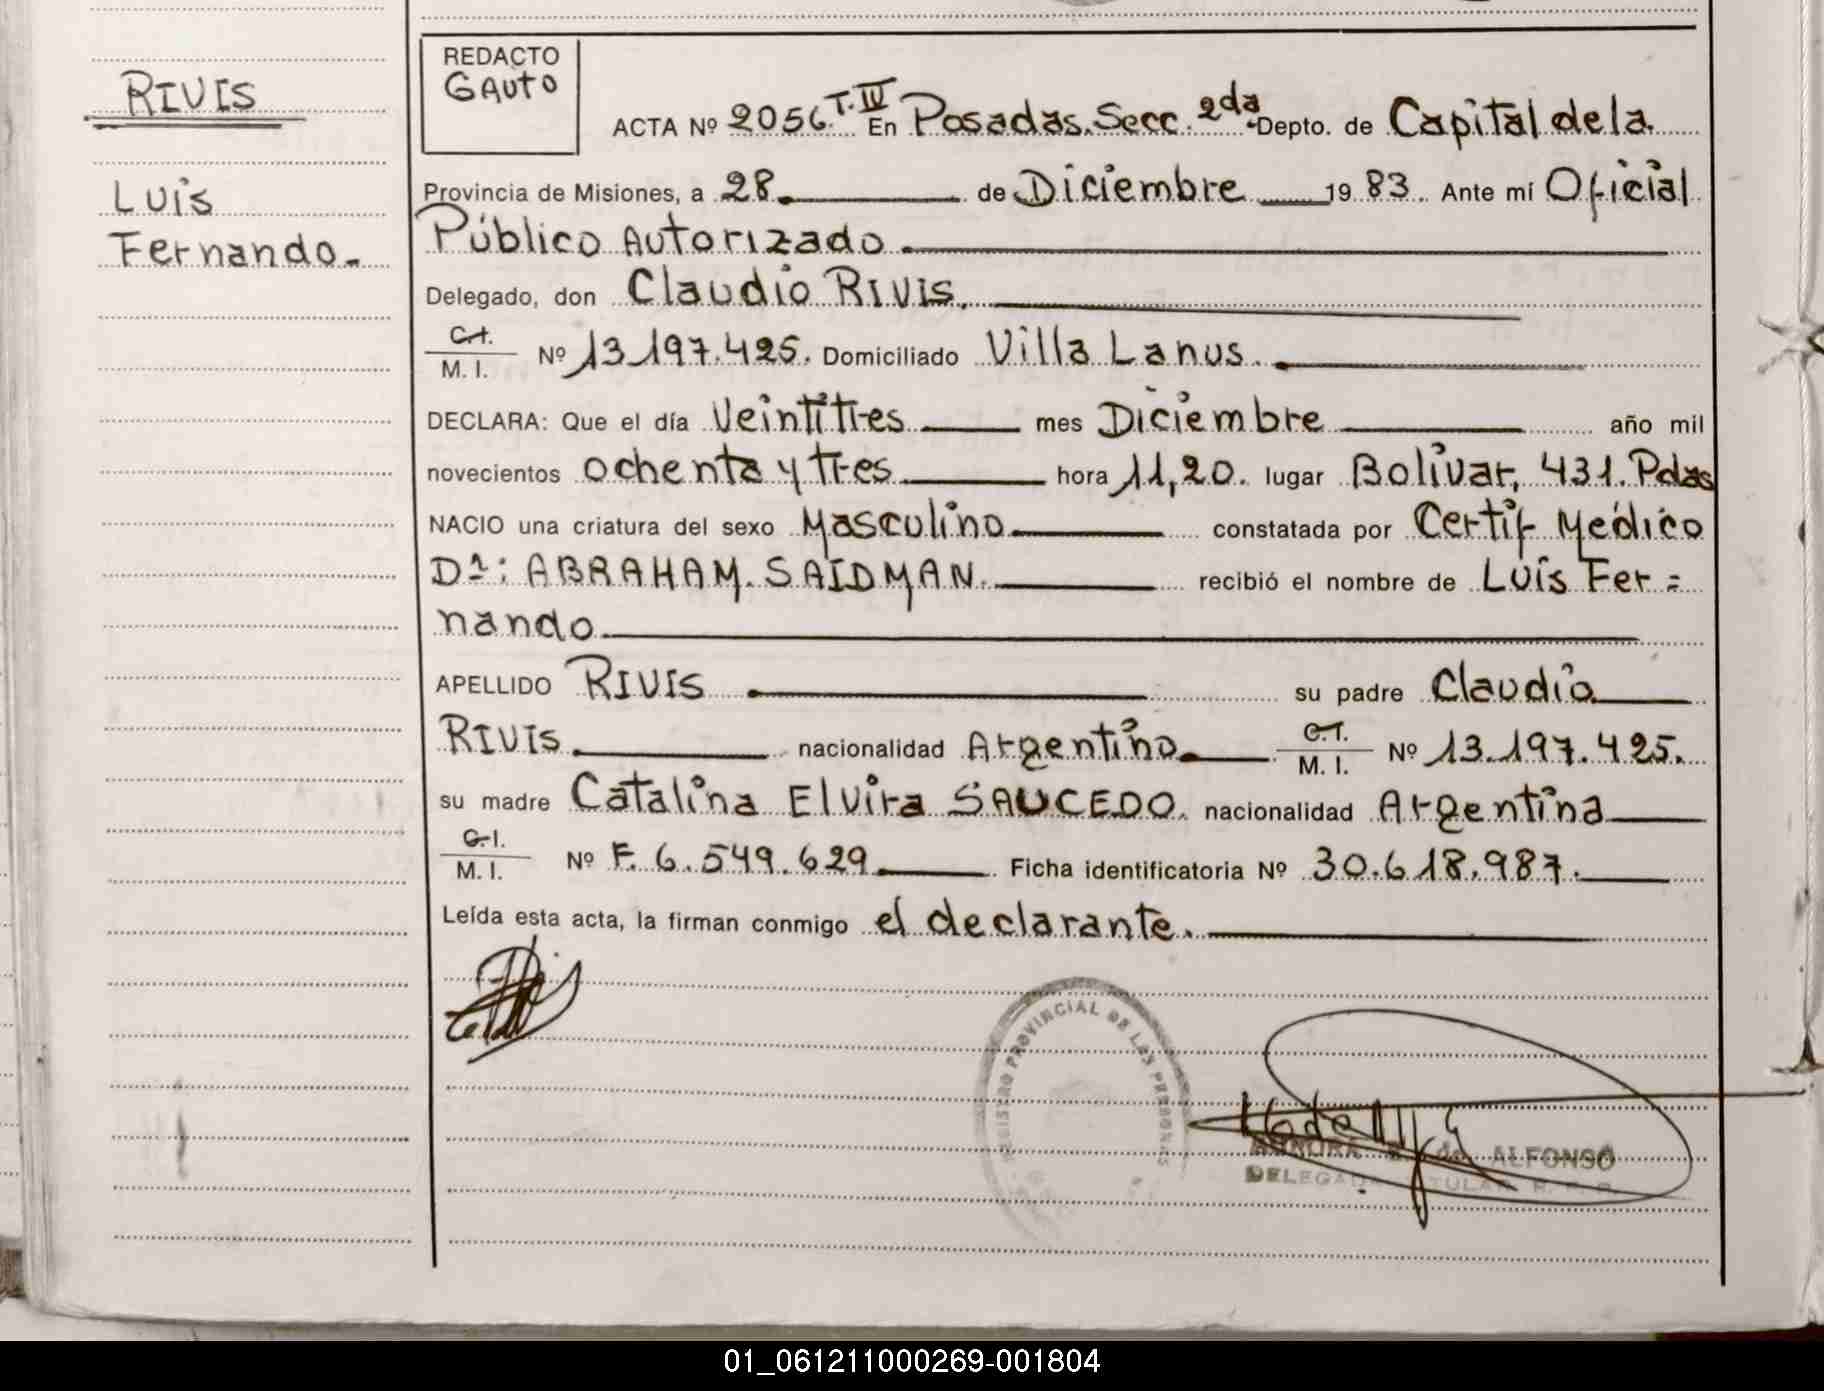 RIVIS
Luis
Fernando.
REDACTO
GAUTO
ACTA Nº 2056. T. IV En Posadas. Secc. 2da. Depto. de Capital de la
Provincia de Misiones, a 28. de Diciembre 19 83. Ante mí Oficial
Público Autorizado.
Delegado, don Claudio RIVIS.
C.I.
M. I. Nº 13.197.425. Domiciliado Villa Lanus.
DECLARA: Que el día Veintitres mes Diciembre año mil
novecientos ochenta y tres hora 11,20. lugar Bolívar, 431. Pdas
NACIO una criatura del sexo Masculino constatada por Certif Médico
Dr: ABRAHAM. SAIDMAN. recibió el nombre de Luis Fer=
nando
APELLIDO RIVIS su padre Claudio
RIVIS nacionalidad Argentino C.I.
M. I. Nº 13.197.425.
su madre Catalina Elvira SAUCEDO. nacionalidad Argentina
C.I.
M. I. Nº F. 6.549.629 Ficha identificatoria Nº 30.618.987.
Leída esta acta, la firman conmigo el declarante.
REGISTRO PROVINCIAL DE LAS PERSONAS
de ALFONSO
01_061211000269-001804